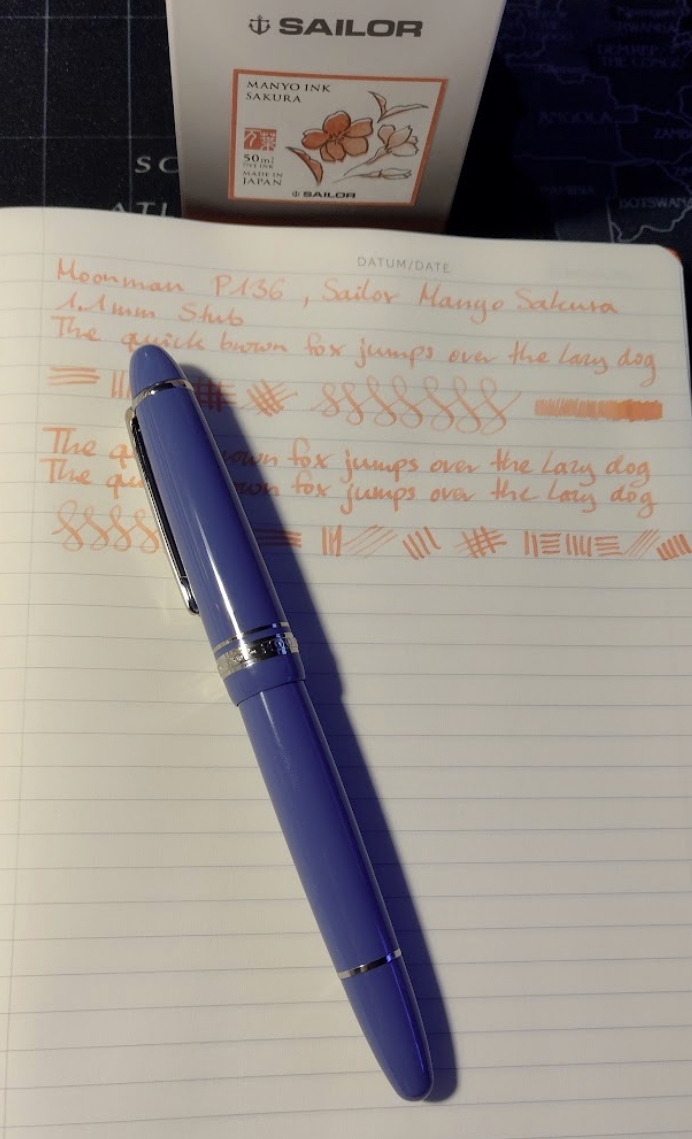 SAILOR
MANYO INK
SAKURA
万葉
50ml
MADE IN
JAPAN
SAILOR
SC
ATL
ANGOLA
BOTSWANA
DATUM/DATE
Moonman P136, Sailor Manyo Sakura
1.1mm Stub
The quick brown fox jumps over the lazy dog
The qu own fox jumps over the lazy dog
The qui own fox jumps over the lazy dog